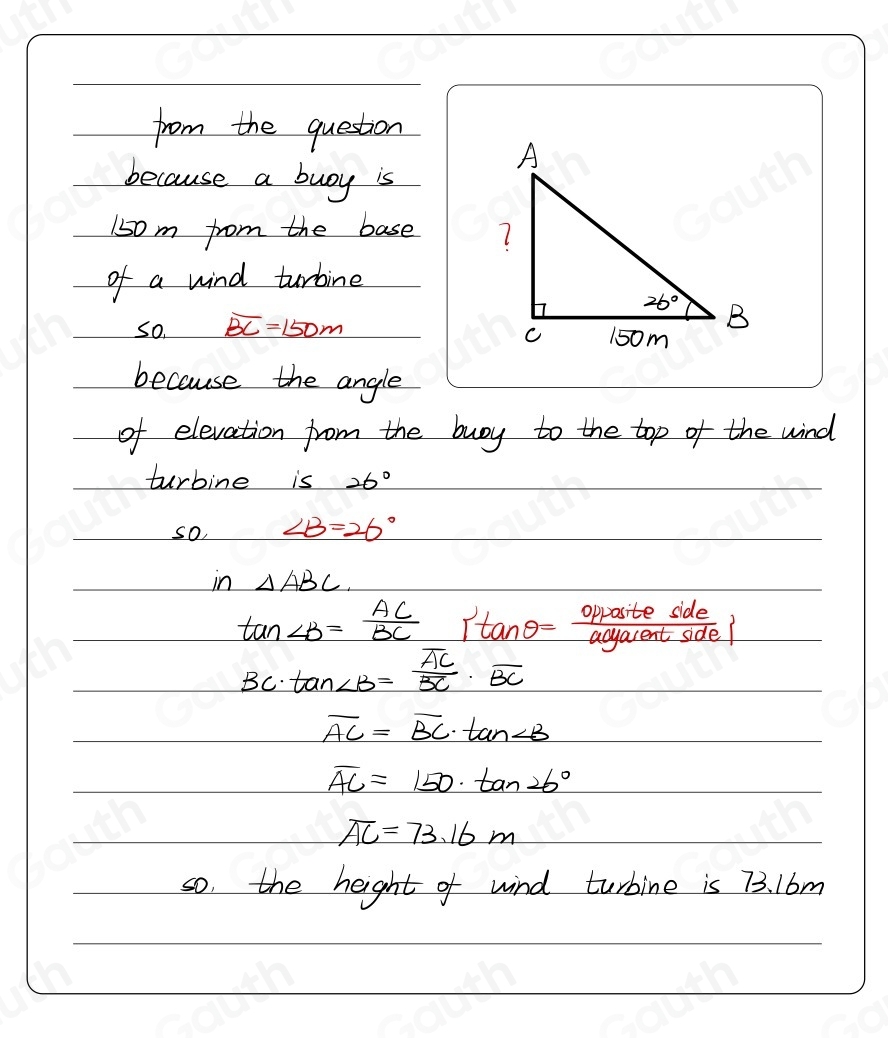 from the question
because a buoy is
150 m from the base
of a wind turbine
so, BC = 150m
because the angle
of elevation from the buoy to the top of the wind
turbine is 26°
so, ∠B = 26°
in △ABC,
tan∠B = AC/BC {tanθ = opposite side/adjacent side}
BC · tan∠B = AC/BC · BC
AC = BC · tan∠B
AC = 150 · tan26°
AC = 73.16 m
so, the height of wind turbine is 73.16m
A
?
26°
B
C
150m
Gauth